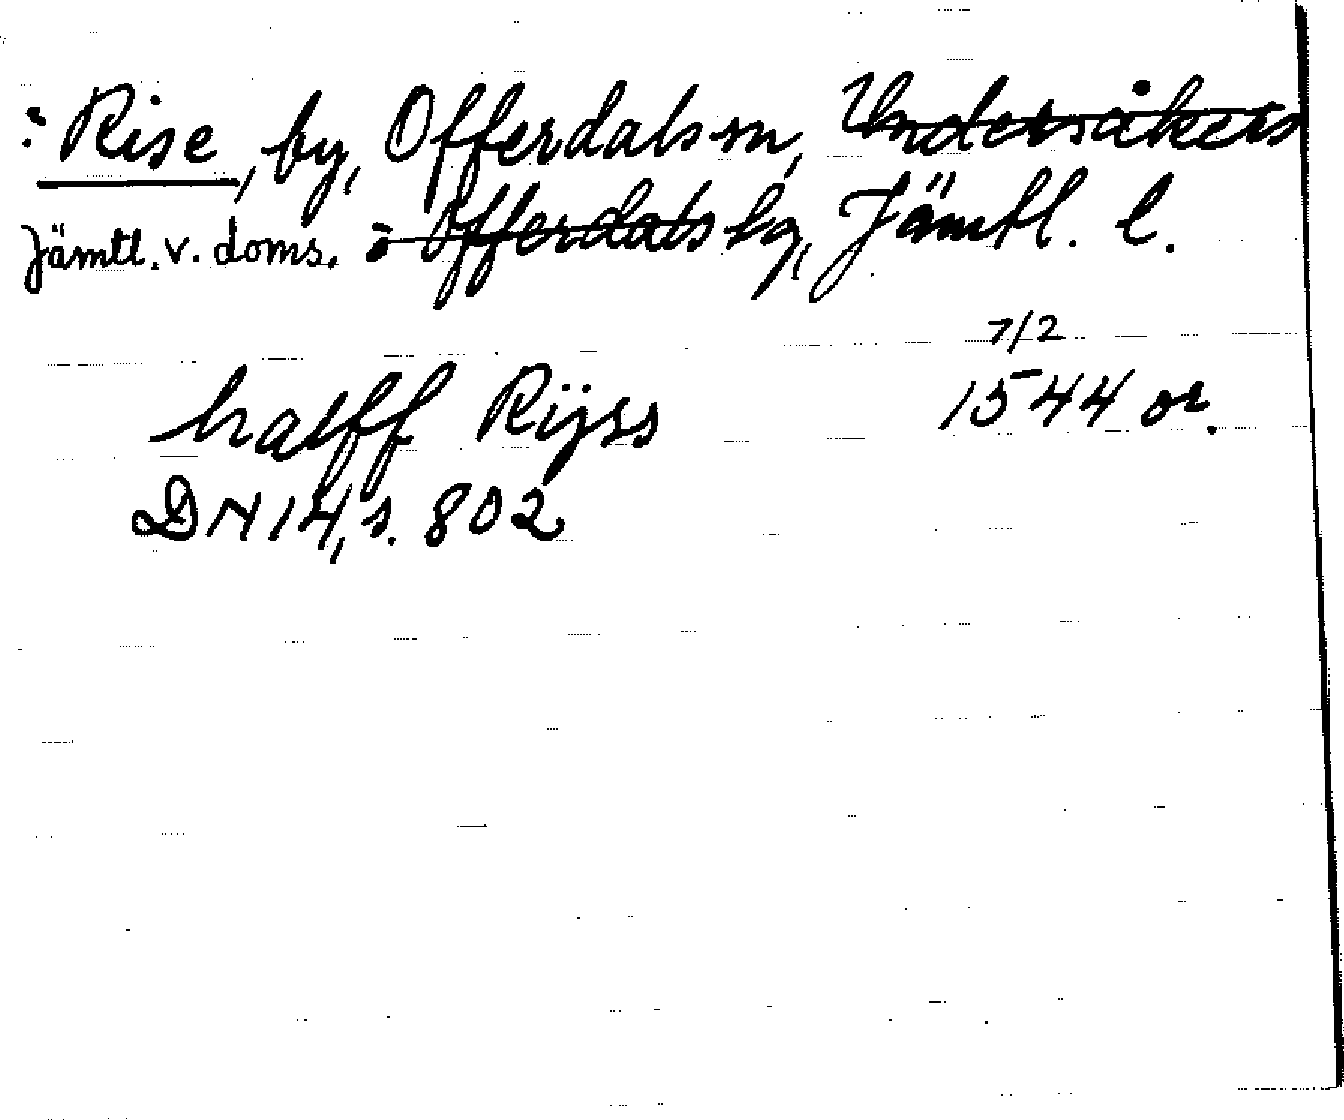 : Rise, by, Offerdals sn, Undersåkers
Jämtl. v. doms. o Offerdals hg, Jämtl. l.
7/2
halff Rijss 1544 or.
DN 14, s. 802